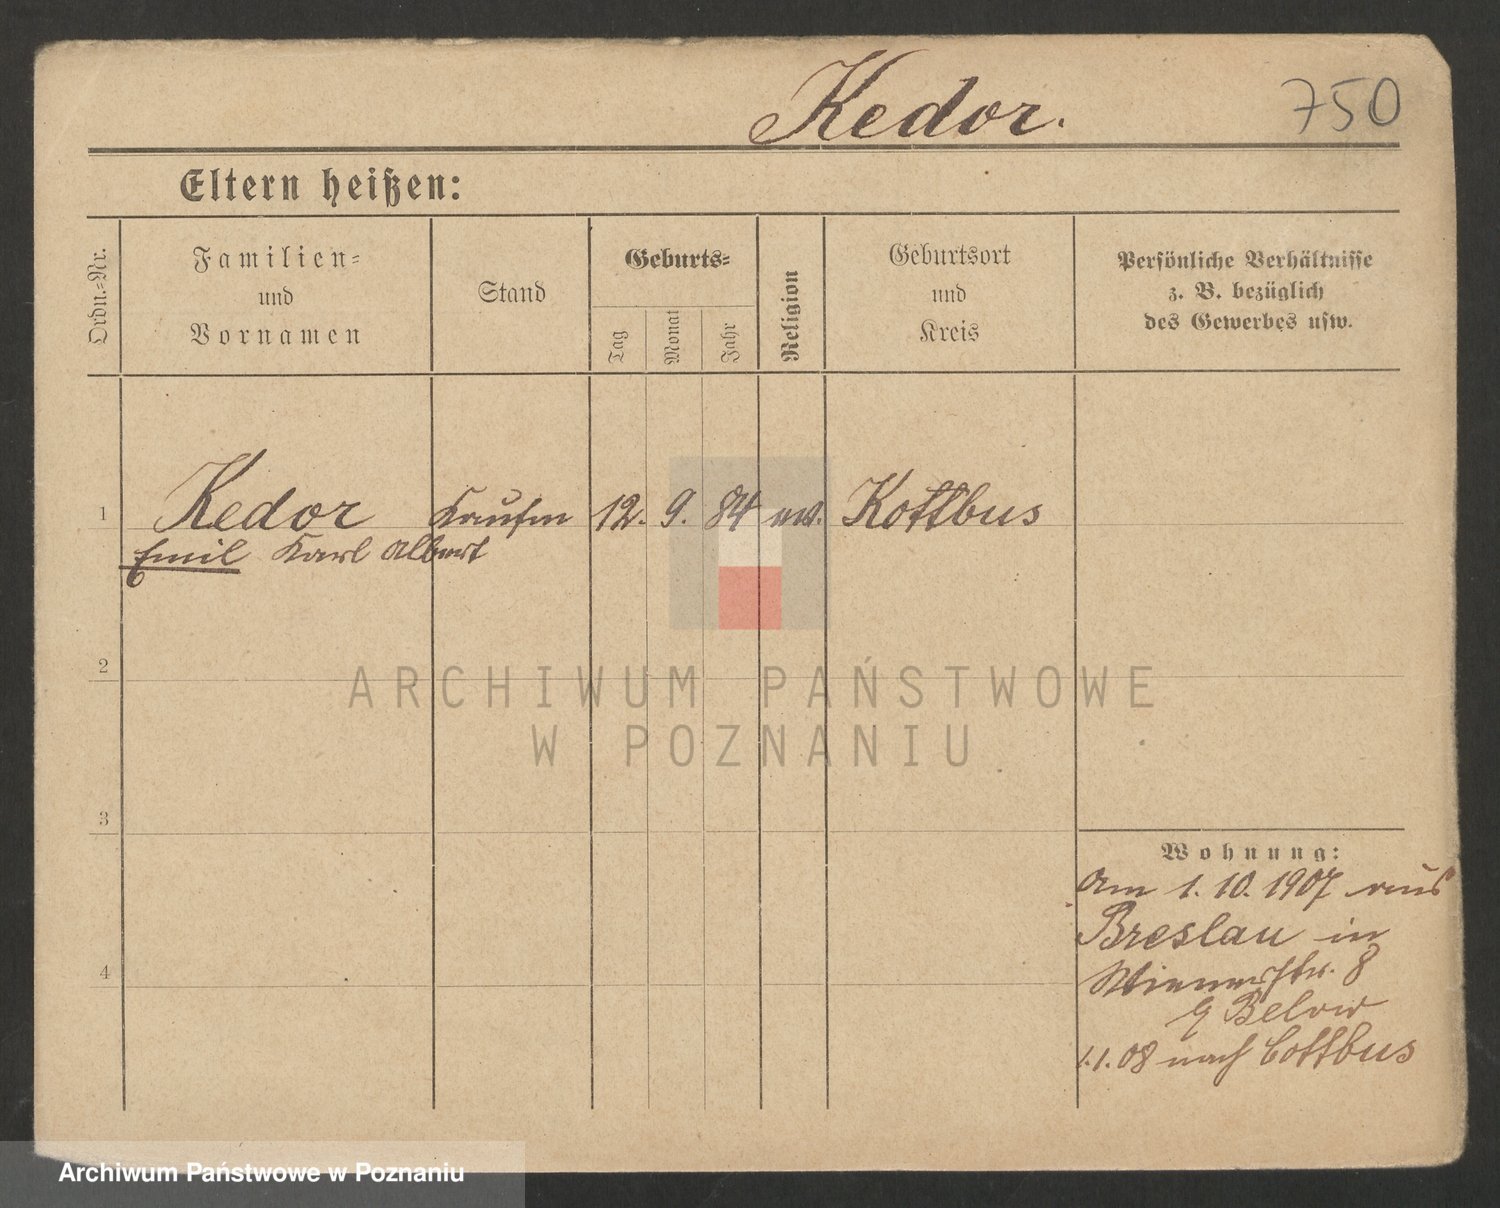 Kedor.
750
Eltern heißen:
Ordn.-Nr.
Familien-
und
Vornamen
Stand
Geburts-
Tag
Monat
Jahr
Religion
Geburtsort
und
Kreis
Persönliche Verhältnisse
z. B. bezüglich
des Gewerbes usw.
1 Kedor Kaufm 12. 9. 84 ev. Kottbus
Emil Karl Albert
2
3
4
Wohnung:
am 1. 10. 1907 aus
Breslau in
Wienerstr. 8
Below
1.1.08 nach Cottbus
ARCHIWUM PAŃSTWOWE
W POZNANIU
Archiwum Państwowe w Poznaniu